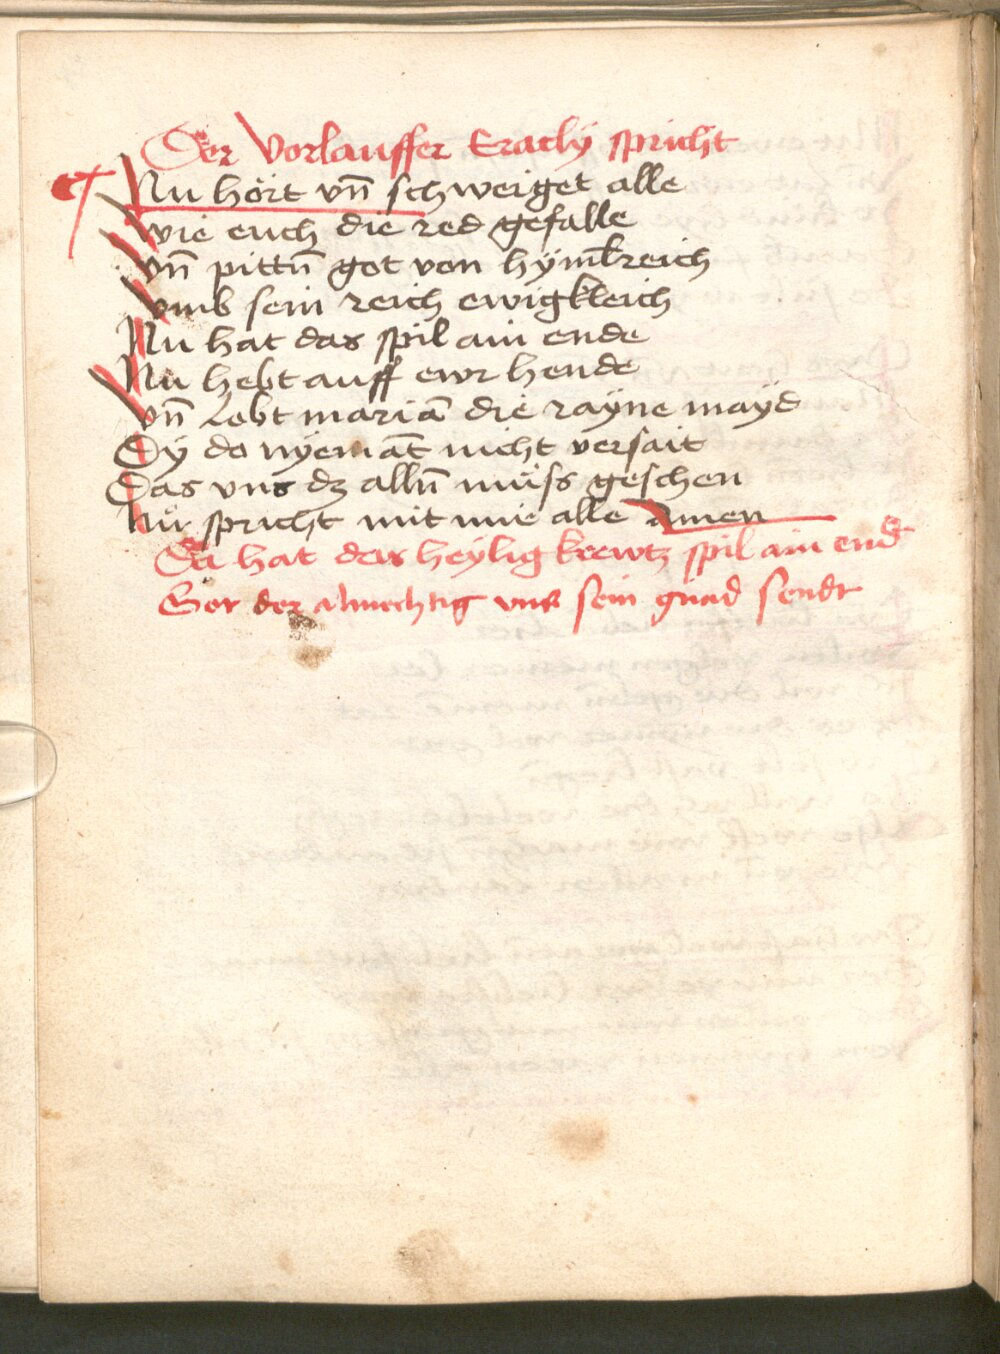 Der Vorlauffer Eracly spricht
Nu hört vn̄ schweiget alle
wie euch die red gefalle
vn̄ pittn̄ got von hymlreich
vmb sein reich ewigkleich
Nu hat das spil ain ende
Nu hebt auff ewr hende
vn̄ lobt mariā die rayne mayd
Dy do nyemāt nicht versait
Das vns dz alln̄ müss geschen
Nu spricht mit mie alle Amen
Da hat des heylig krewtz spil ain end
Got der almechtig vns sein gnad sendt